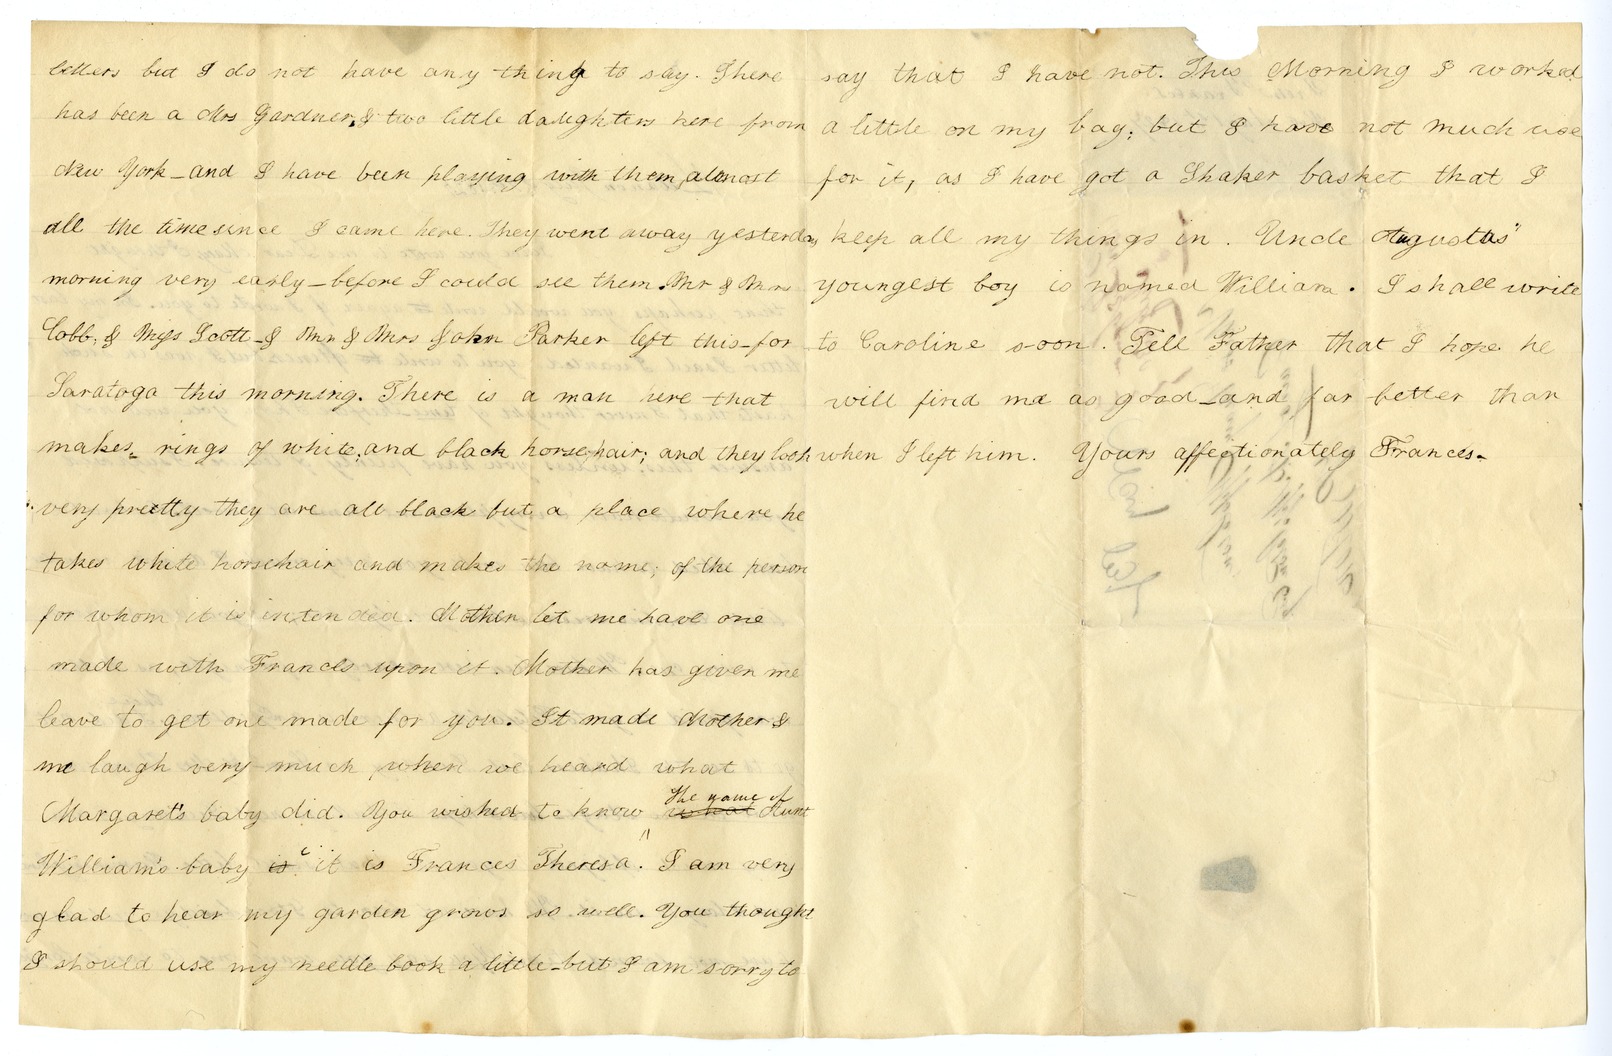 letters but I do not have any thing to say. There
has been a Mrs Gardner, & two little daughters here from
New York – and I have been playing with them, almost
all the time since I came here. They went away yesterday
morning very early – before I could see them. Mr & Mrs
Cobb, & Miss Scott – & Mr & Mrs John Parker left this – for
Saratoga this morning. There is a man here that
makes, rings of white, and black horsehair; and they look
very pretty they are all black but a place where he
takes white horsehair and makes the name, of the person
for whom it is intended. Mother let me have one
made with Frances upon it. Mother has given me
leave to get one made for you. It made Mother &
me laugh very much, when we heard what
Margaret's baby did. You wished to know what the name of Aunt
William's baby is it is Frances Theresa. I am very
glad to hear my garden grows so well. You thought
I should use my needle book a little – but I am sorry to
say that I have not. This Morning I worked
a little on my bag; but I have not much use
for it, as I have got a Shaker basket that I
keep all my things in. Uncle Augustus"
youngest boy is named William. I shall write
to Caroline soon. Tell Father that I hope he
will find me as good – and far better than
when I left him. Yours affectionately Frances –